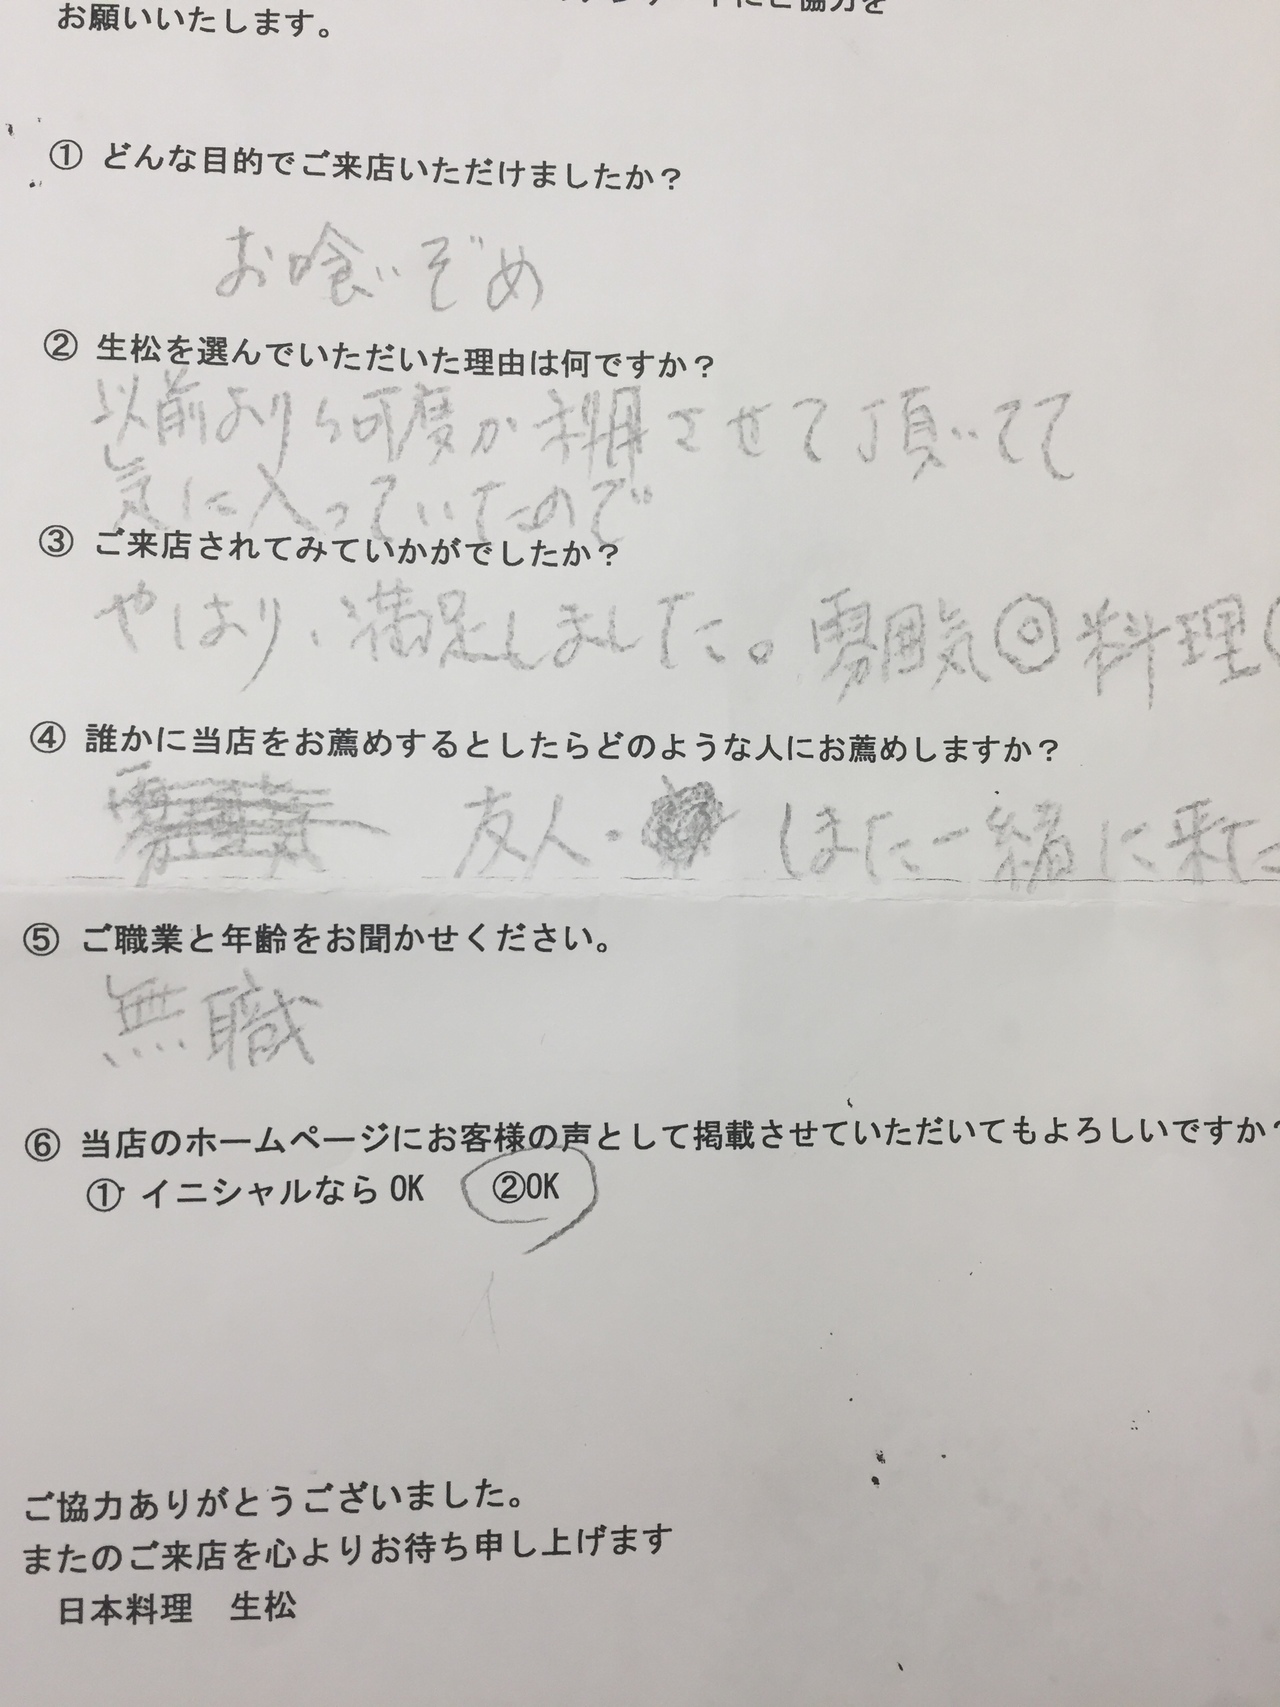 にご協力を
お願いいたします。
① どんな目的でご来店いただけましたか？
お喰いぞめ
② 生松を選んでいただいた理由は何ですか？
以前より何度か利用させて頂いてて
気に入っていたので
③ ご来店されてみていかがでしたか？
やはり、満足しました。雰囲気◎料理
④ 誰かに当店をお薦めするとしたらどのような人にお薦めしますか？
友人・ また一緒に来た
⑤ ご職業と年齢をお聞かせください。
無職
⑥ 当店のホームページにお客様の声として掲載させていただいてもよろしいですか？
① イニシャルなら OK ②OK
ご協力ありがとうございました。
またのご来店を心よりお待ち申し上げます
日本料理 生松